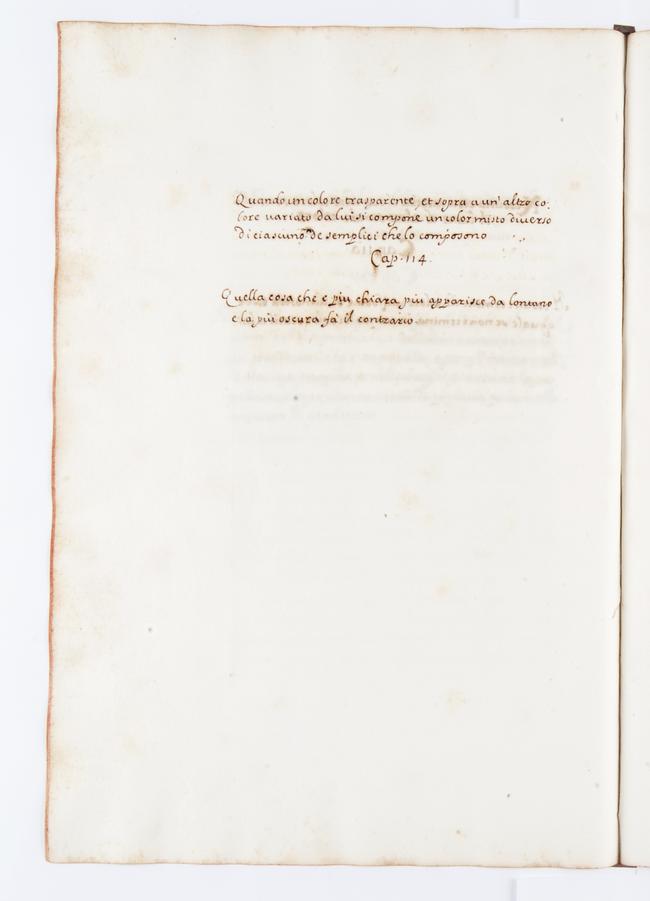 Quando un colore trasparente, et sopra a un' altro co:
lore variato da lui si compone un color misto diverso
di ciascuno de semplici che lo composono
Cap. 114.
Quella cosa che e piu chiara piu apparisce da lontano
e la piu oscura fa il contrario.